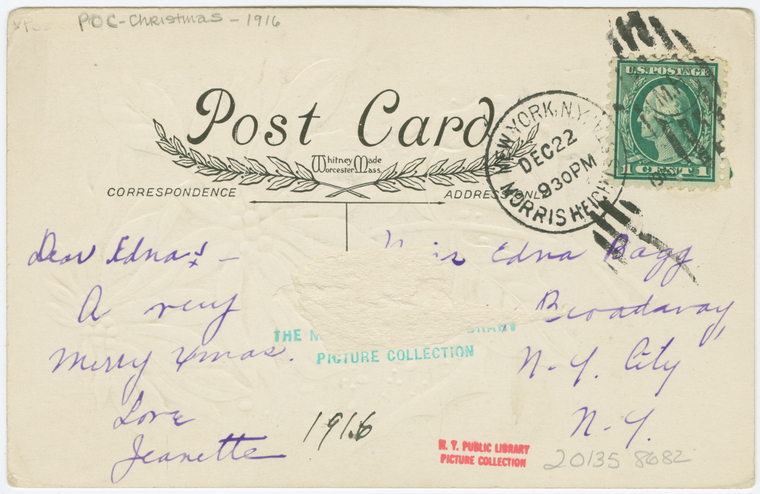 POC-Christmas-1916
U.S. POSTAGE
1 CENT 1
NEW YORK, N.Y.
DEC 22
930 PM
MORRIS HEIGHTS
Post Card
Whitney Made
Worcester Mass.
CORRESPONDENCE
ADDRESS ONLY
Dear Edna! -
A very
Merry Xmas.
Love
Jeanette
1916
Miss Edna Bagg
Broadway,
N-Y. City
N-Y.
THE N
PICTURE COLLECTION
N. Y. PUBLIC LIBRARY
PICTURE COLLECTION
20135 8682